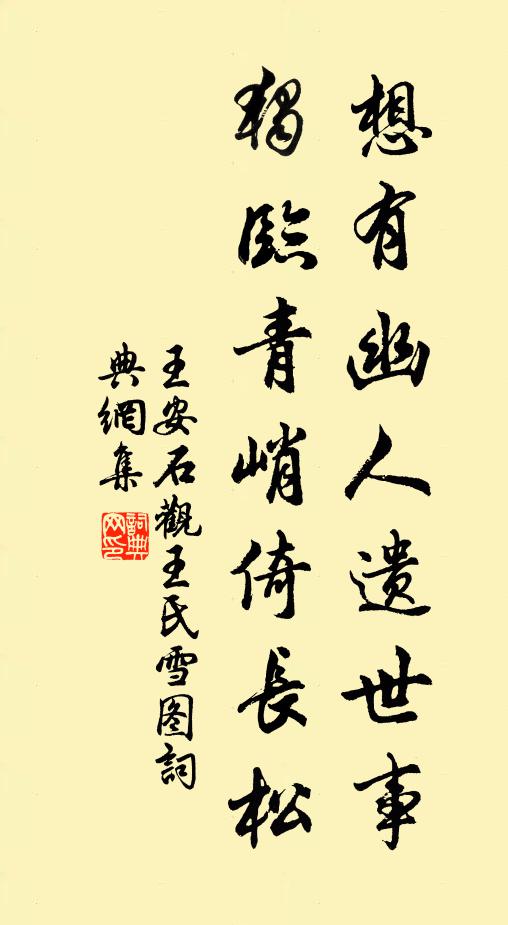 想有幽人遗世事
獨臨青峭倚長松
王安石觀王氏雪图詞
典網集
詞典
网印